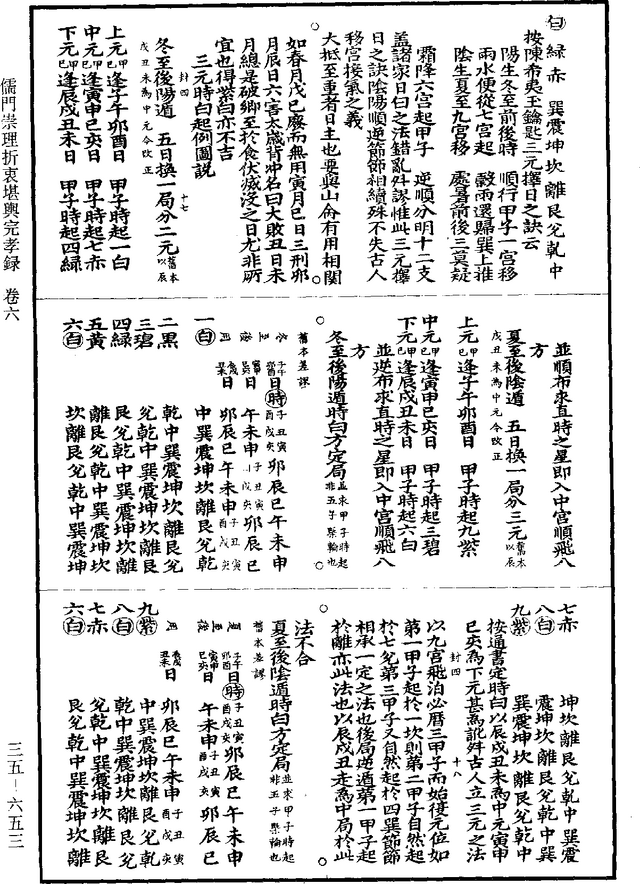 ㊂ 綠 赤 巽震坤坎離艮兌乾中
按陳希夷玉鑰匙三元擇日之訣云
陽生冬至前後時 順行甲子一宮移
雨水便從七宮起 穀雨還歸巽上推
陰生夏至九宮移 處暑前後三莫疑
霜降六宮起甲子 逆順分明十二支
蓋諸家日白之法錯亂舛謬惟此三元擇
日之訣陰陽順逆節節相續殊不失古人
移宮接氣之義
大抵至重者日主也要與山侖有用相關
如春月戊己廢而無用寅月巳日三刑卯
月辰日六害太歲背冲名曰大敗丑日未
月總是破卿至於食伏滅没之日尤非所
宜也得紫白亦不吉
三元時白起例圖說
封四 十七
冬至後陽遁 五日換一局分二元 舊本以辰
戌丑未為中元今改正
上元甲己逢子午卯酉日 甲子時起一白
中元甲己逢寅申巳亥日 甲子時起七赤
下元甲己逢辰戌丑未日 甲子時起四綠
並順布求直時之星即入中宮順飛八
方
夏至後陰遁 五日換一局分三元 舊本以辰
戌丑未為中元今改正
上元甲己逢子午卯酉日 甲子時起九紫
中元甲己逢寅申巳亥日 甲子時起三碧
下元甲己逢辰戌丑未日 甲子時起六白
並逆布求直時之星即入中宮順飛八
方
冬至後陽遁時白方定局 並求甲子時起非五子祭輪也
舊本差謬
子午卯酉日時 子丑寅酉戌亥 卯辰巳午未申
寅申巳亥日 午未申 子丑寅酉戌亥 卯辰巳
辰戌丑未日 卯辰巳午未申 子丑寅酉戌亥
一白 中巽震坤坎離艮兌乾
二黑 乾中巽震坤坎離艮兌
三碧 兌乾中巽震坤坎離艮
四綠 艮兌乾中巽震坤坎離
五黃 離艮兌乾中巽震坤坎
六白 坎離艮兌乾中巽震坤
七赤 坤坎離艮兌乾中巽震
八白 震坤坎離艮兌乾中巽
九紫 巽震坤坎離艮兌乾中
按通書定時白以辰戌丑未為中元寅申
巳亥為下元甚為訛舛古人立三元之法
封四 十八
以九宮飛泊必曆三甲子而始復元位如
第一甲子起於一坎則第二甲子自然起
於七兌第三甲子又自然起於四巽節節
相承一定之法也後局逆遁第一甲子起
於離亦此法也以辰戌丑未為中局於此
法不合
夏至後陰遁時白方定局 並求甲子時起非五子祭輪也
舊本差謬
子午卯酉日時 子丑寅酉戌亥 卯辰巳午未申
寅申巳亥日 午未申 子丑寅酉戌亥 卯辰巳
辰戌丑未日 卯辰巳午未申 子丑寅酉戌亥
九紫 中巽震坤坎離艮兌乾
八白 乾中巽震坤坎離艮兌
七赤 兌乾中巽震坤坎離艮
六白 艮兌乾中巽震坤坎離
儒門崇理折衷堪輿完孝錄 卷六
三五-六五三